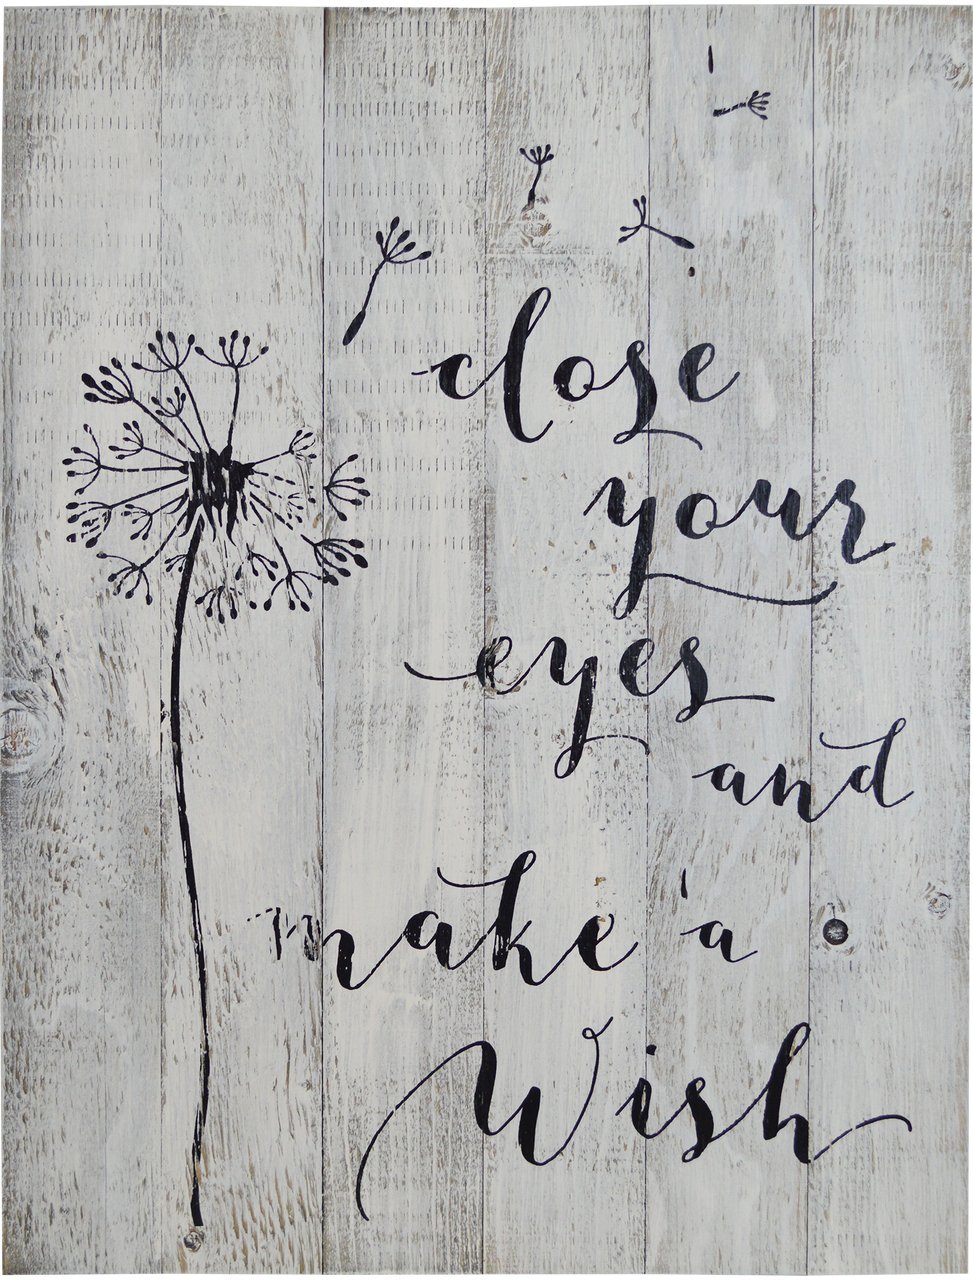 close
your
eyes
and
make a
Wish